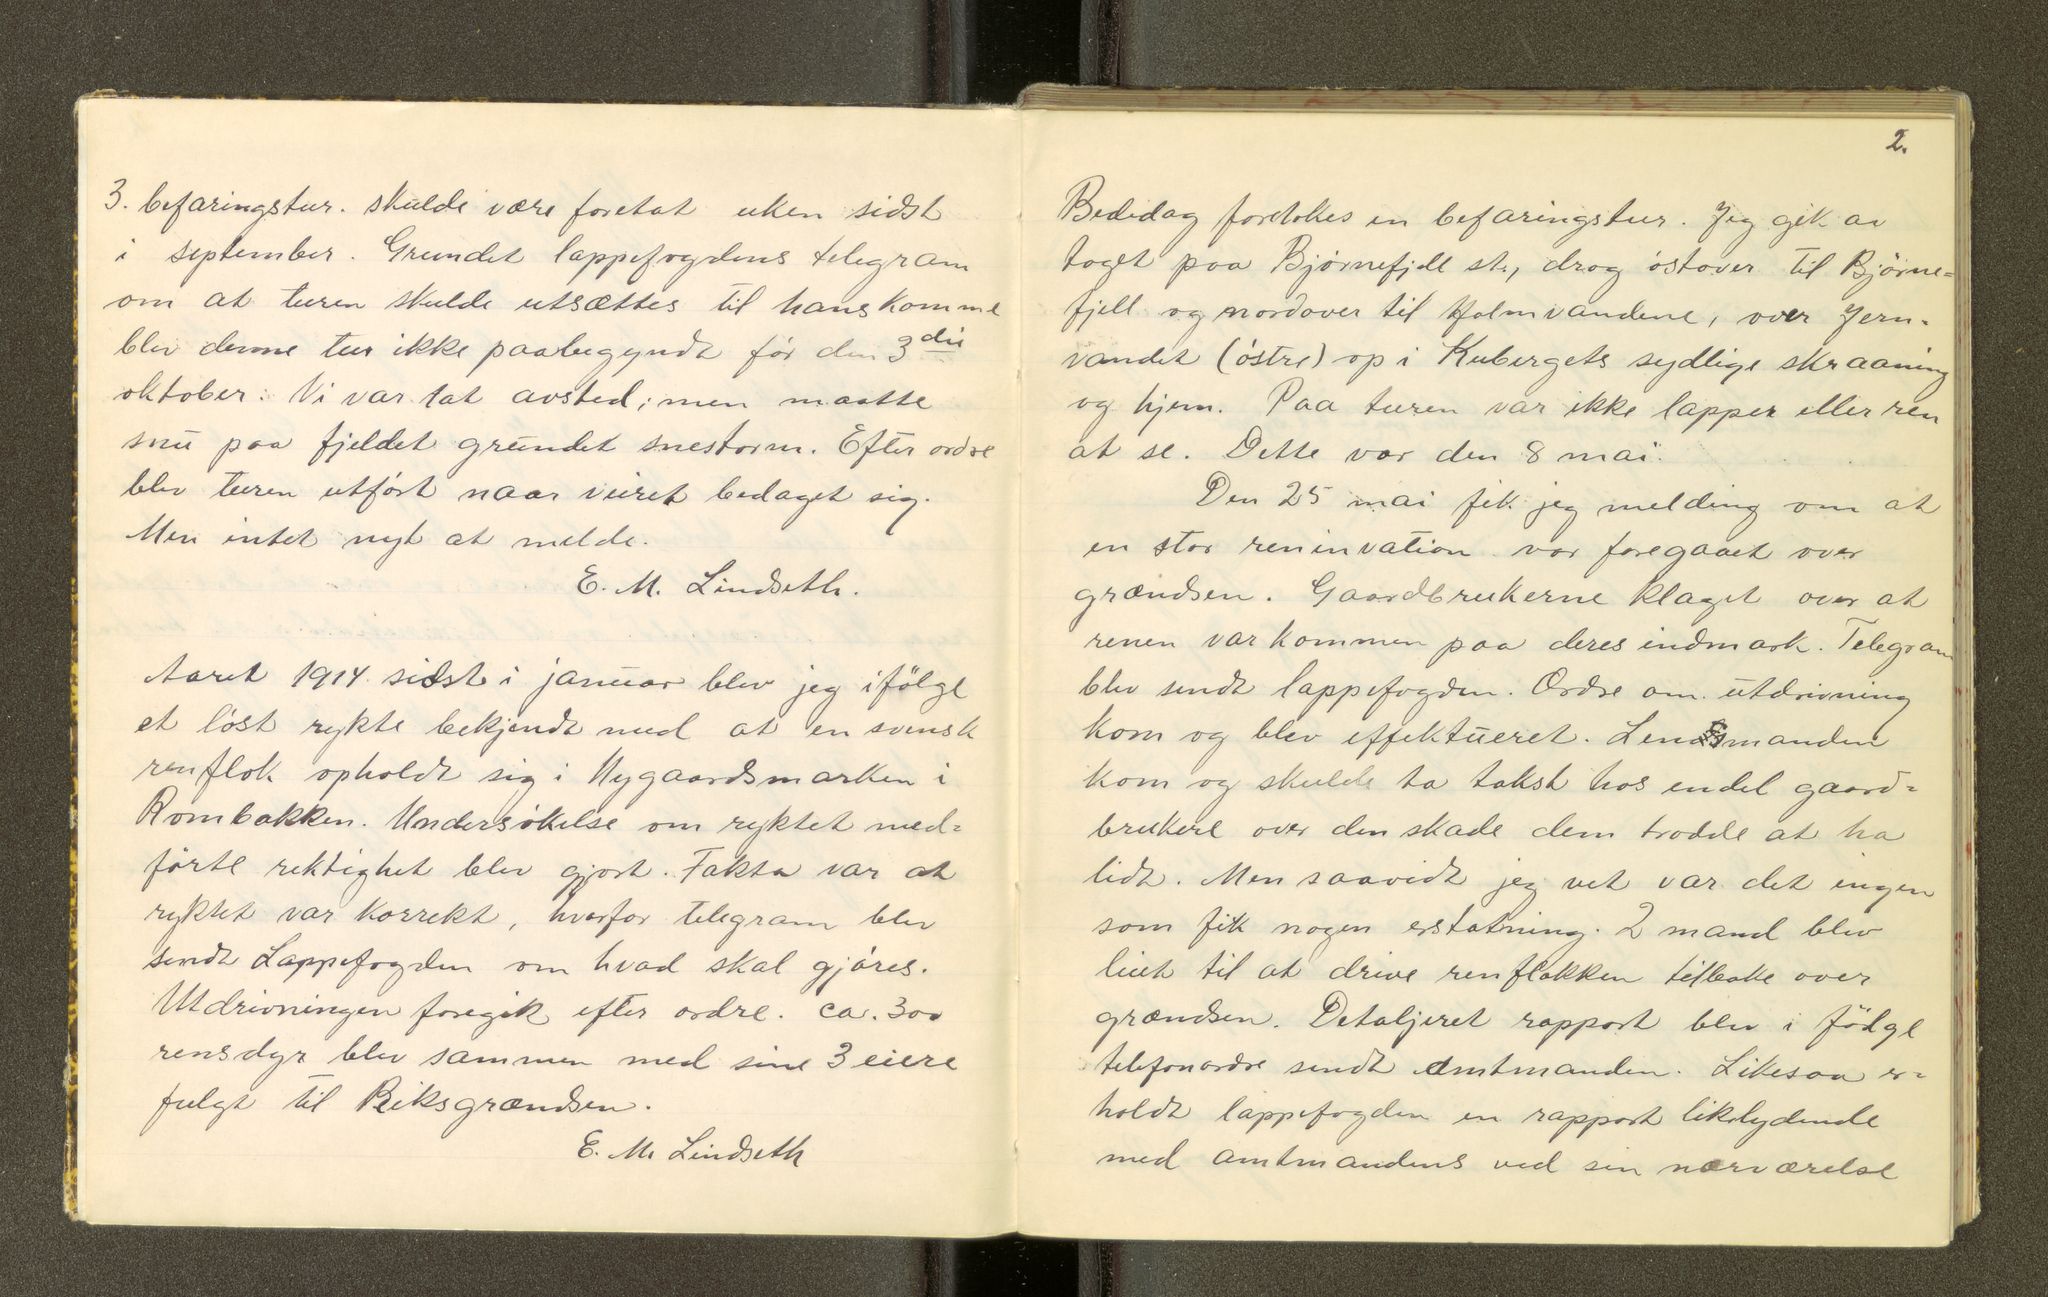 3. befaringstur. skulde være foretat uken sidst
i september. Grundet lappefogdens telegram
om at turen skulde utsættes til hans komme
blev denne tur ikke paabegyndt før den 3die
oktober. Vi var tat avsted; men maatte
snu paa fjeldet grundet snestorm. Efter ordre
blev turen utført naar veiret bedaget sig.
Men intet nyt at melde.
E. M. Lindseth.
Aaret 1914 sidst i januar blev jeg ifølge
et løst rykte bekjendt med at en svensk
renflok opholdt sig i Nygaardsmarken i
Rombakken. Undersøkelse om ryktet med-
førte rektighet blev gjort. Fakta var at
ryktet var korrekt, hvorfor telegram blev
sendt Lappefogden om hvad skal gjøres.
Utdrivningen foregik efter ordre. ca. 300
rensdyr blev sammen med sine 3 eiere
fulgt til Riksgrændsen.
E. M. Lindseth
2.
Bededag foretokes en befaringstur. Jeg gik av
toget paa Bjørnefjell st., drog østover til Bjørne-
fjell og nordover til Holmvandene, over Jern-
vandet (østre) op i Kubergets sydlige skraaning
og hjem. Paa turen var ikke lapper eller ren
at se. Dette var den 8 mai.
Den 25 mai fik jeg melding om at
en stor reninvation var foregaaet over
grændsen. Gaardbrukerne klaget over at
renen var kommen paa deres indmark. Telegram
blev sendt lappefogden. Ordre om utdrivning
kom og blev effektueret. Lensmanden
kom og skulde ta takst hos endel gaard-
brukere over den skade dem trodde at ha
lidt. Men saavidt jeg vet var det ingen
som fik nogen erstatning. 2 mand blev
leiet til at drive renflokken tilbake over
grændsen. Detaljeret rapport blev i følge
telefonordre sendt amtmanden. Likesaa er-
holdt lappefogden en rapport likelydende
med amtmandens ved sin nærværelse